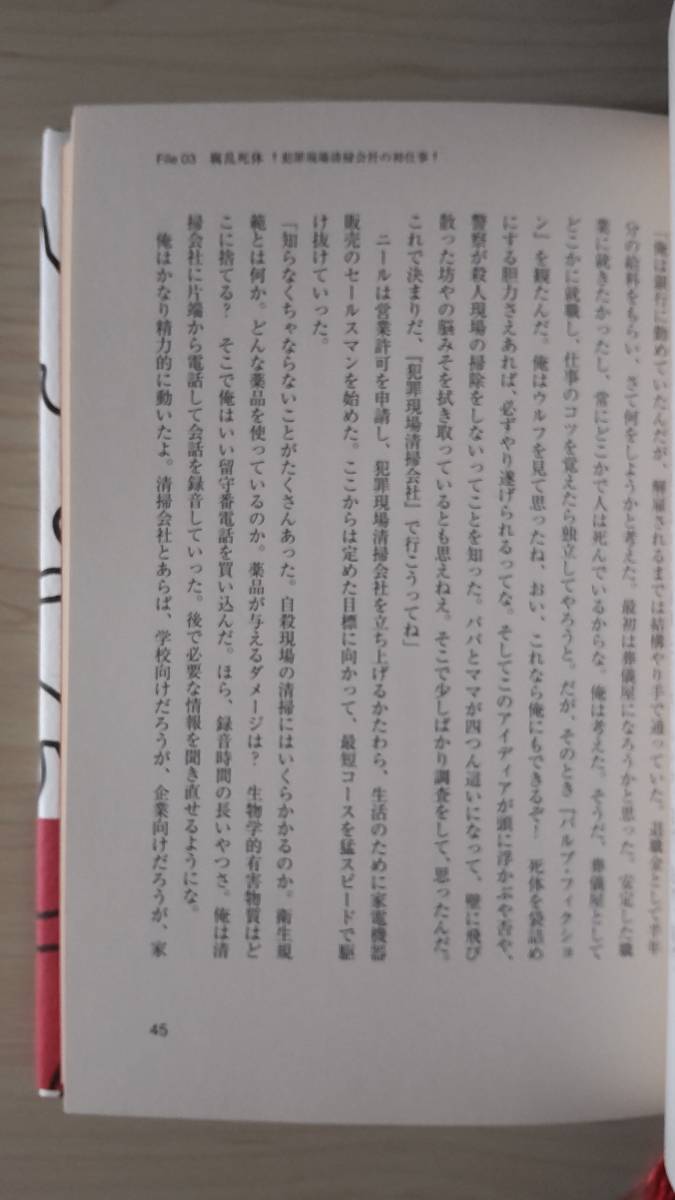 File 03　腐乱死体　！犯罪現場清掃会社の初仕事！
「俺は銀行に勤めていたんだが、解雇されるまでは結構やり手で通っていた。退職金として半年
分の給料をもらい、さて何をしようかと考えた。最初は葬儀屋になろうかと思った。安定した職
業に就きたかったし、常にどこかで人は死んでいるからな。俺は考えた。そうだ、葬儀屋として
どこかに就職し、仕事のコツを覚えたら独立してやろうと。だが、そのとき『パルプ・フィクショ
ン』を観たんだ。俺はウルフを見て思ったね、おい、これなら俺にもできるぞ！　死体を袋詰め
にする胆力さえあれば、必ずやり遂げられるってな。そしてこのアイディアが頭に浮かぶや否や、
警察が殺人現場の掃除をしないってことを知った。パパとママが四つん這いになって、壁に飛び
散った坊やの脳みそを拭き取っているとも思えねえ。そこで少しばかり調査をして、思ったんだ。
これで決まりだ、『犯罪現場清掃会社』で行こうってね」
ニールは営業許可を申請し、犯罪現場清掃会社を立ち上げるかたわら、生活のために家電機器
販売のセールスマンを始めた。ここからは定めた目標に向かって、最短コースを猛スピードで駆
け抜けていった。
「知らなくちゃならないことがたくさんあった。自殺現場の清掃にはいくらかかるのか。衛生規
範とは何か。どんな薬品を使っているのか。薬品が与えるダメージは？　生物学的有害物質はど
こに捨てる？　そこで俺はいい留守番電話を買い込んだ。ほら、録音時間の長いやつさ。俺は清
掃会社に片端から電話して会話を録音していった。後で必要な情報を聞き直せるようにな。
俺はかなり精力的に動いたよ。清掃会社とあらば、学校向けだろうが、企業向けだろうが、家
45